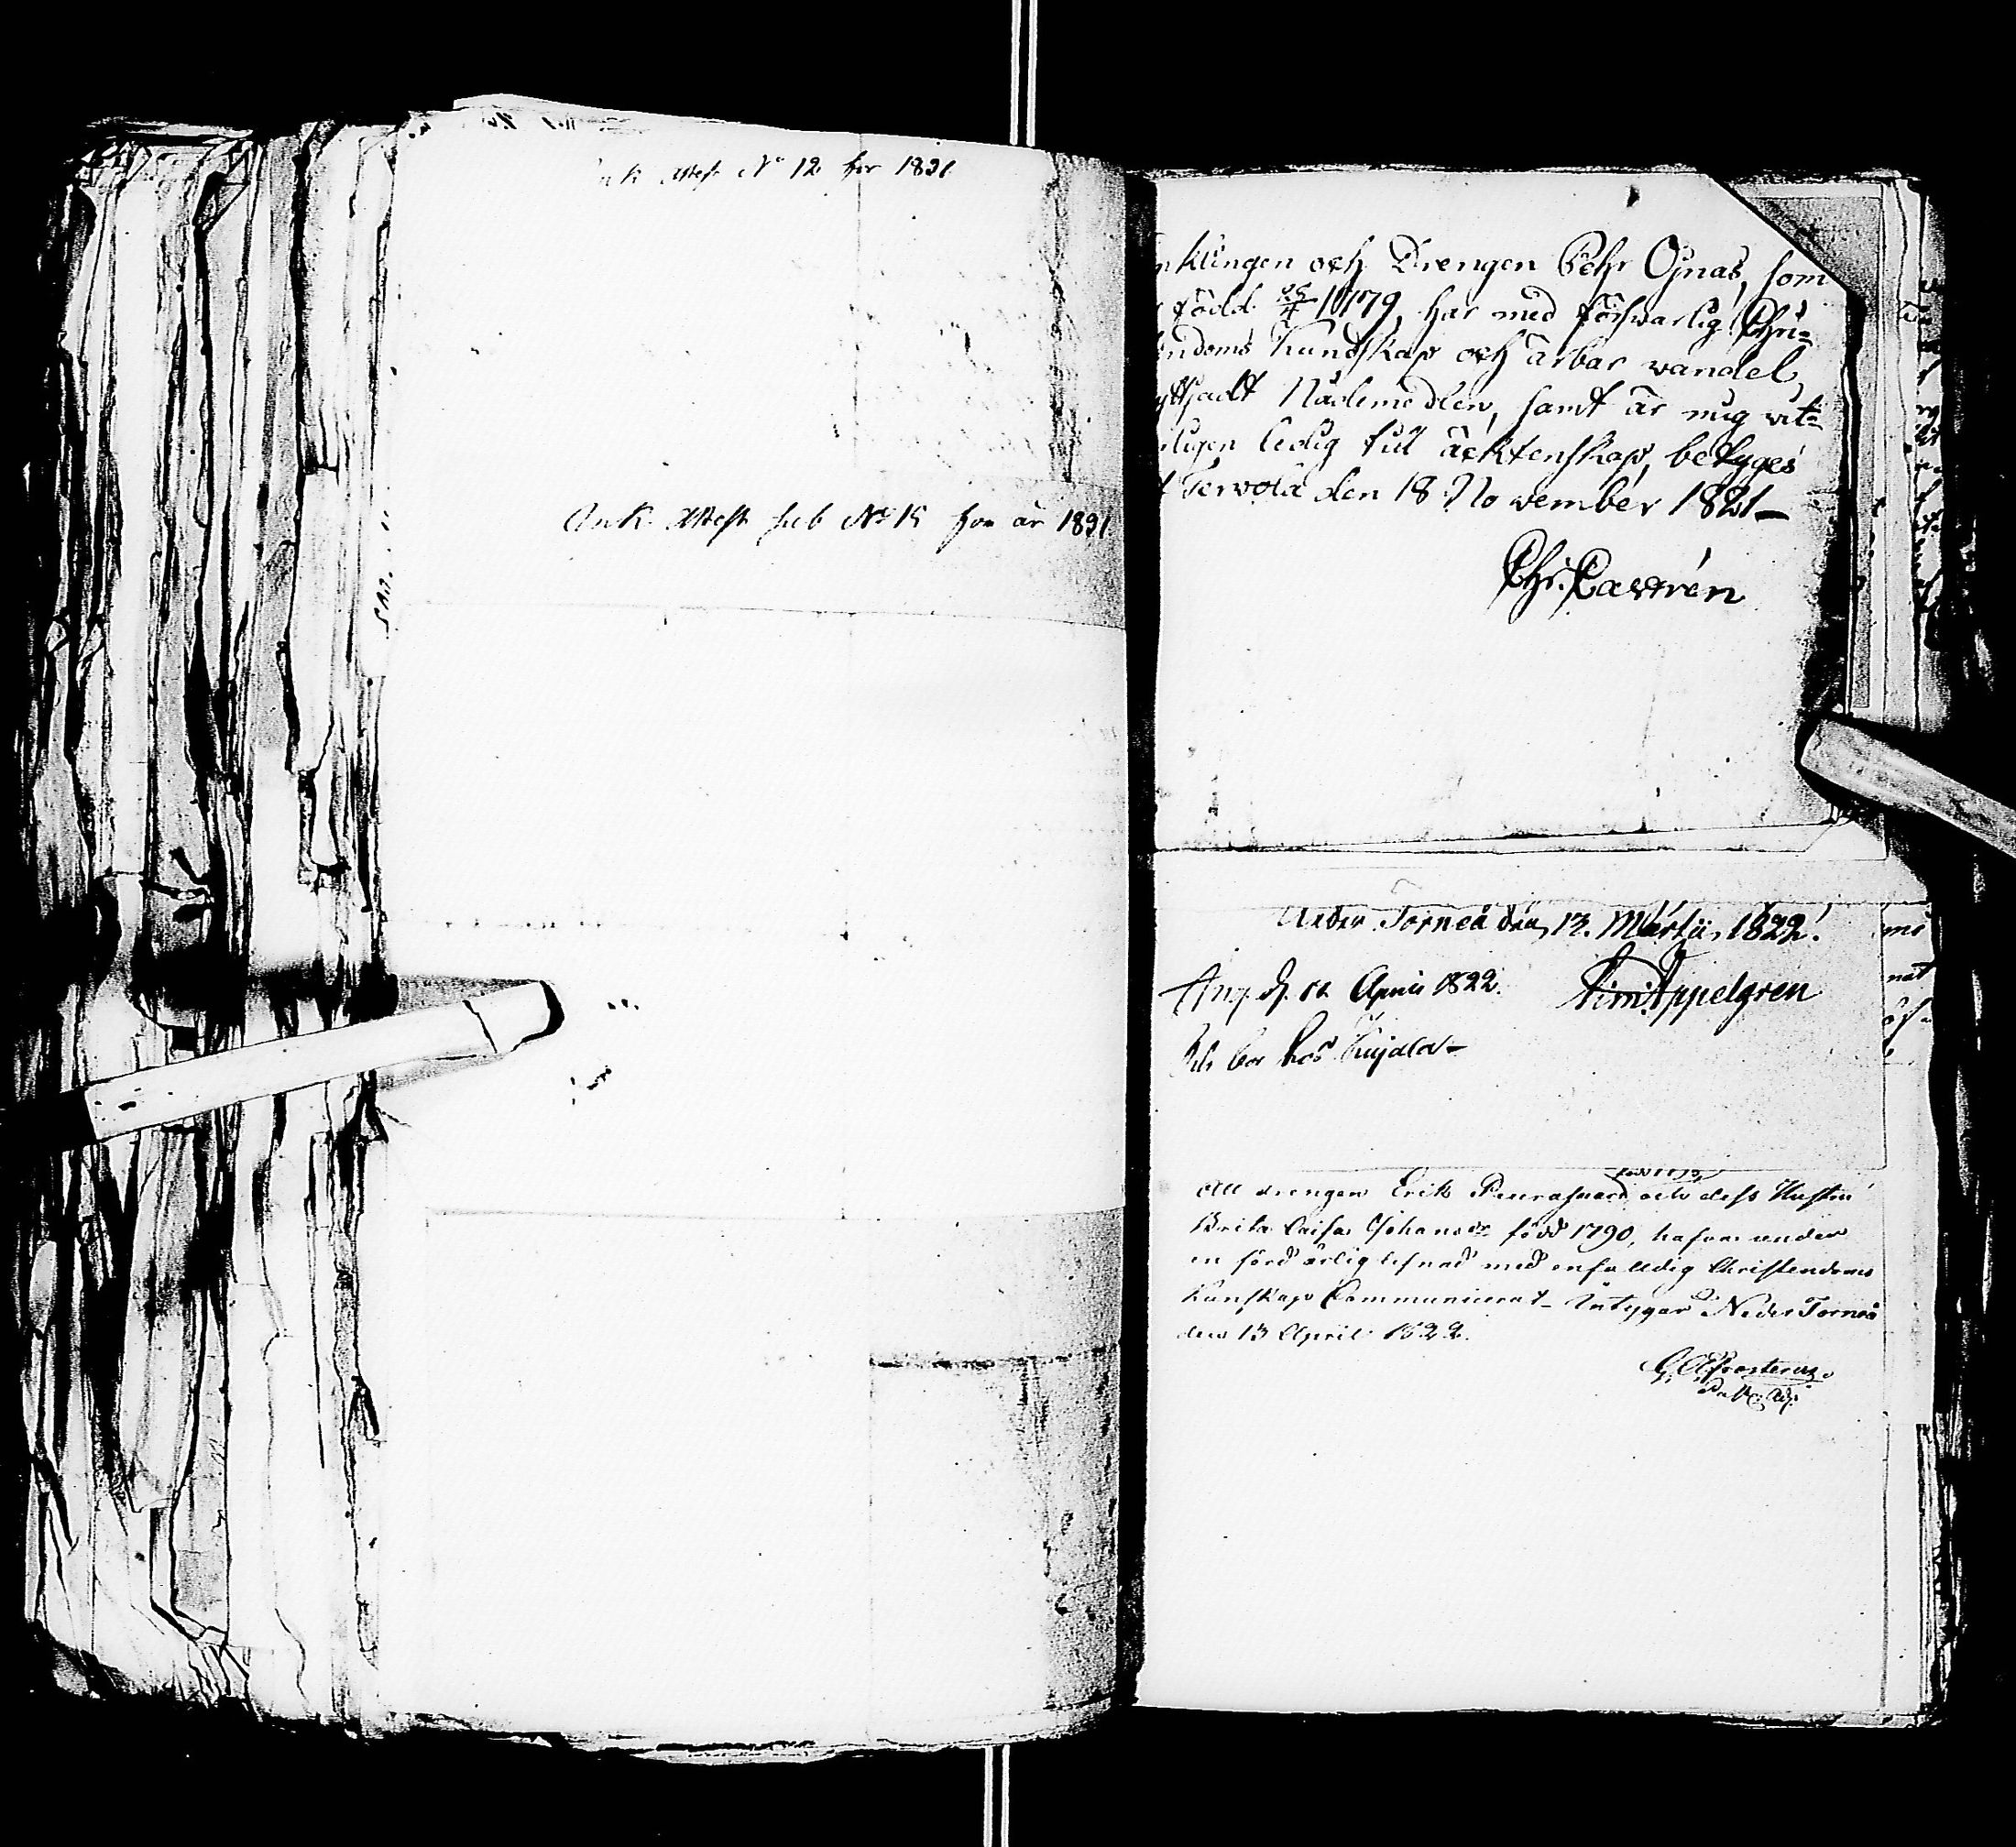 Attest N° 12 for 1821
Ank. Attest sub N° 15 för år 1821
nklingen och Drengen Pehr Ojnas, som
född 26/4 1779, har med försvarlig Chri-
endoms kundskap och ärbar vandel,
yttjadt Nådemedlen, samt är mig vet-
ligen ledig till äcktenskap, betyges
Tervola den 18 November 1821 –
Chr. Cavrén
Neder Torneå den 13. Martii, 1822.
Ang. d. 12 April 1822. Appelgren
bor hos Kujala –
född
Att drengen Erik och dess Hustru
Brita Caisa Johansdr född 1790, hafva under
en förd ärlig lefnad med enfalldig Christendoms
kunskap Communicerat – Intygar Neder Torneå
den 13 April 1822.